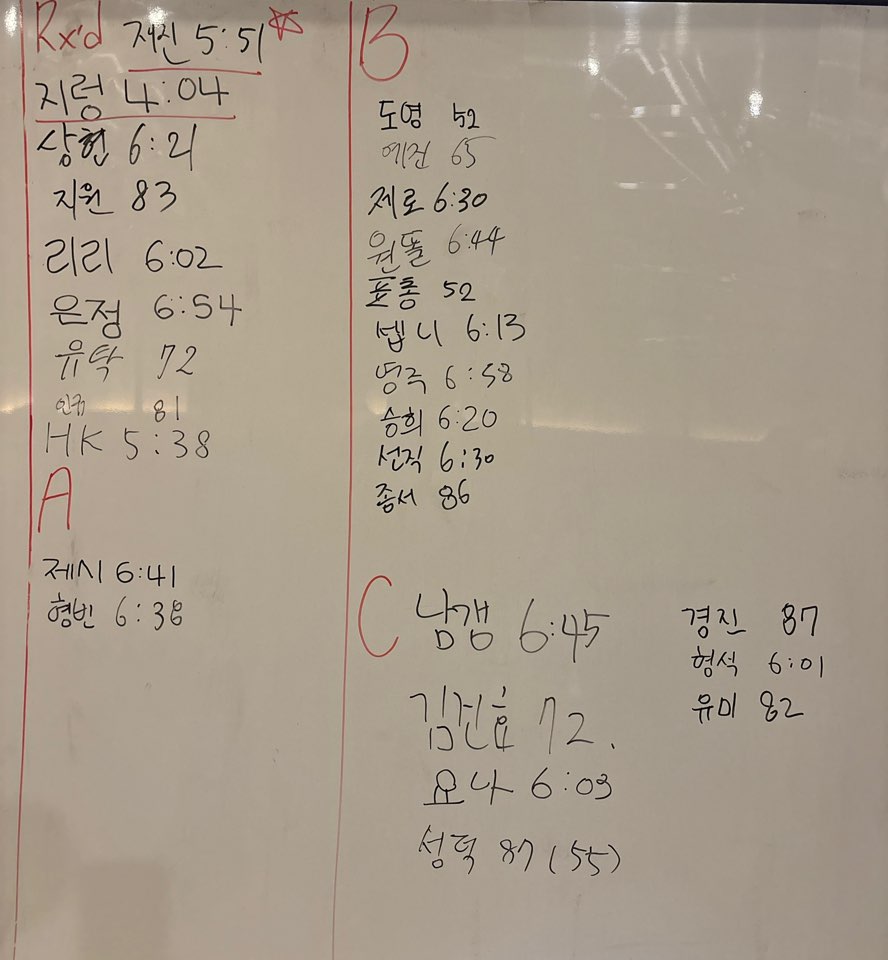 Rx'd 저진 5:51
지렁 4:04
상현 6:21
지원 83
리리 6:02
은정 6:54
유탁 72
81
HK 5:38
A
제시 6:41
형빈 6:38
B
도영 52
예진 65
제로 6:30
원똘 6:44
표총 52
셉니 6:13
영국 6:58
승희 6:20
선직 6:30
종서 86
C 남갬 6:45
김건효 72.
요나 6:03
성덕 87 (55)
경진 87
형석 6:01
유미 82